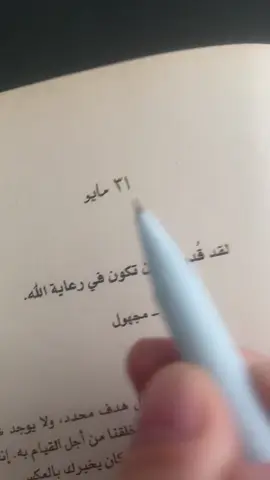 ٣١ مايو
لقد تكون في رعاية الله.
ـ مجهول
هدف محدد، ولا يوجد
خلقنا من أجل القيام به.
كان يخيرك بالعكس